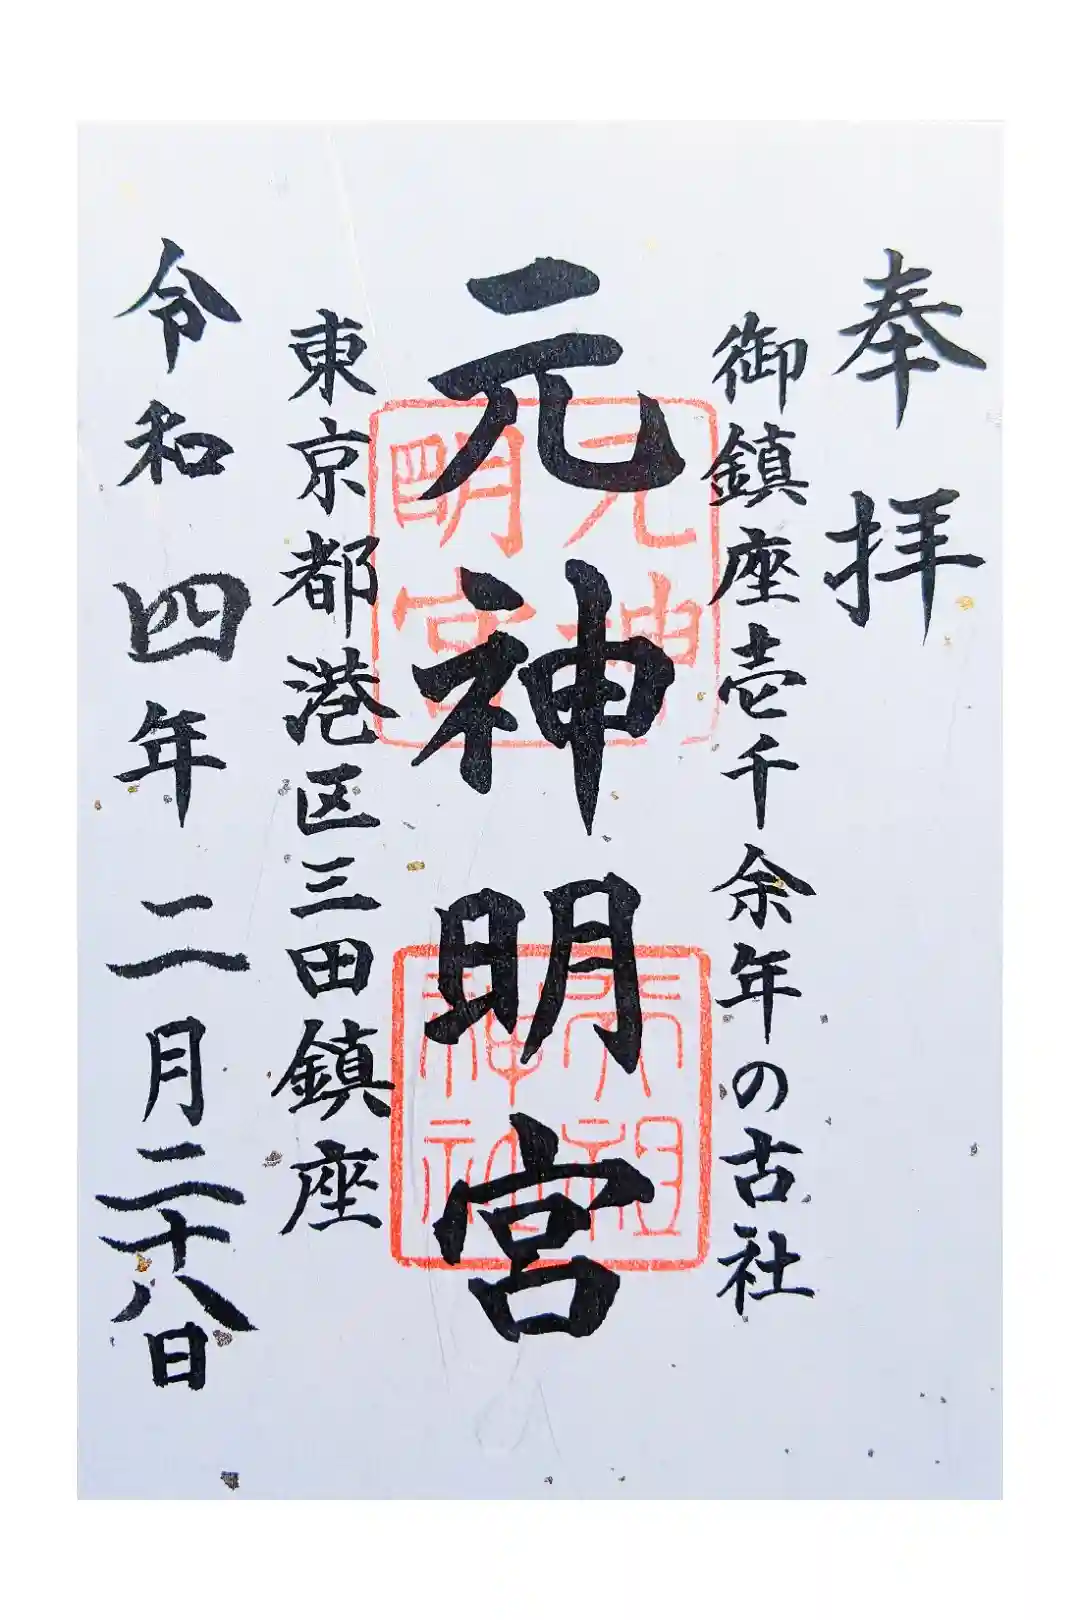 奉拝
御鎮座壱千余年の古社
元神明宮
元神明宮
天祖神社
東京都港区三田鎮座
令和四年二月二十八日